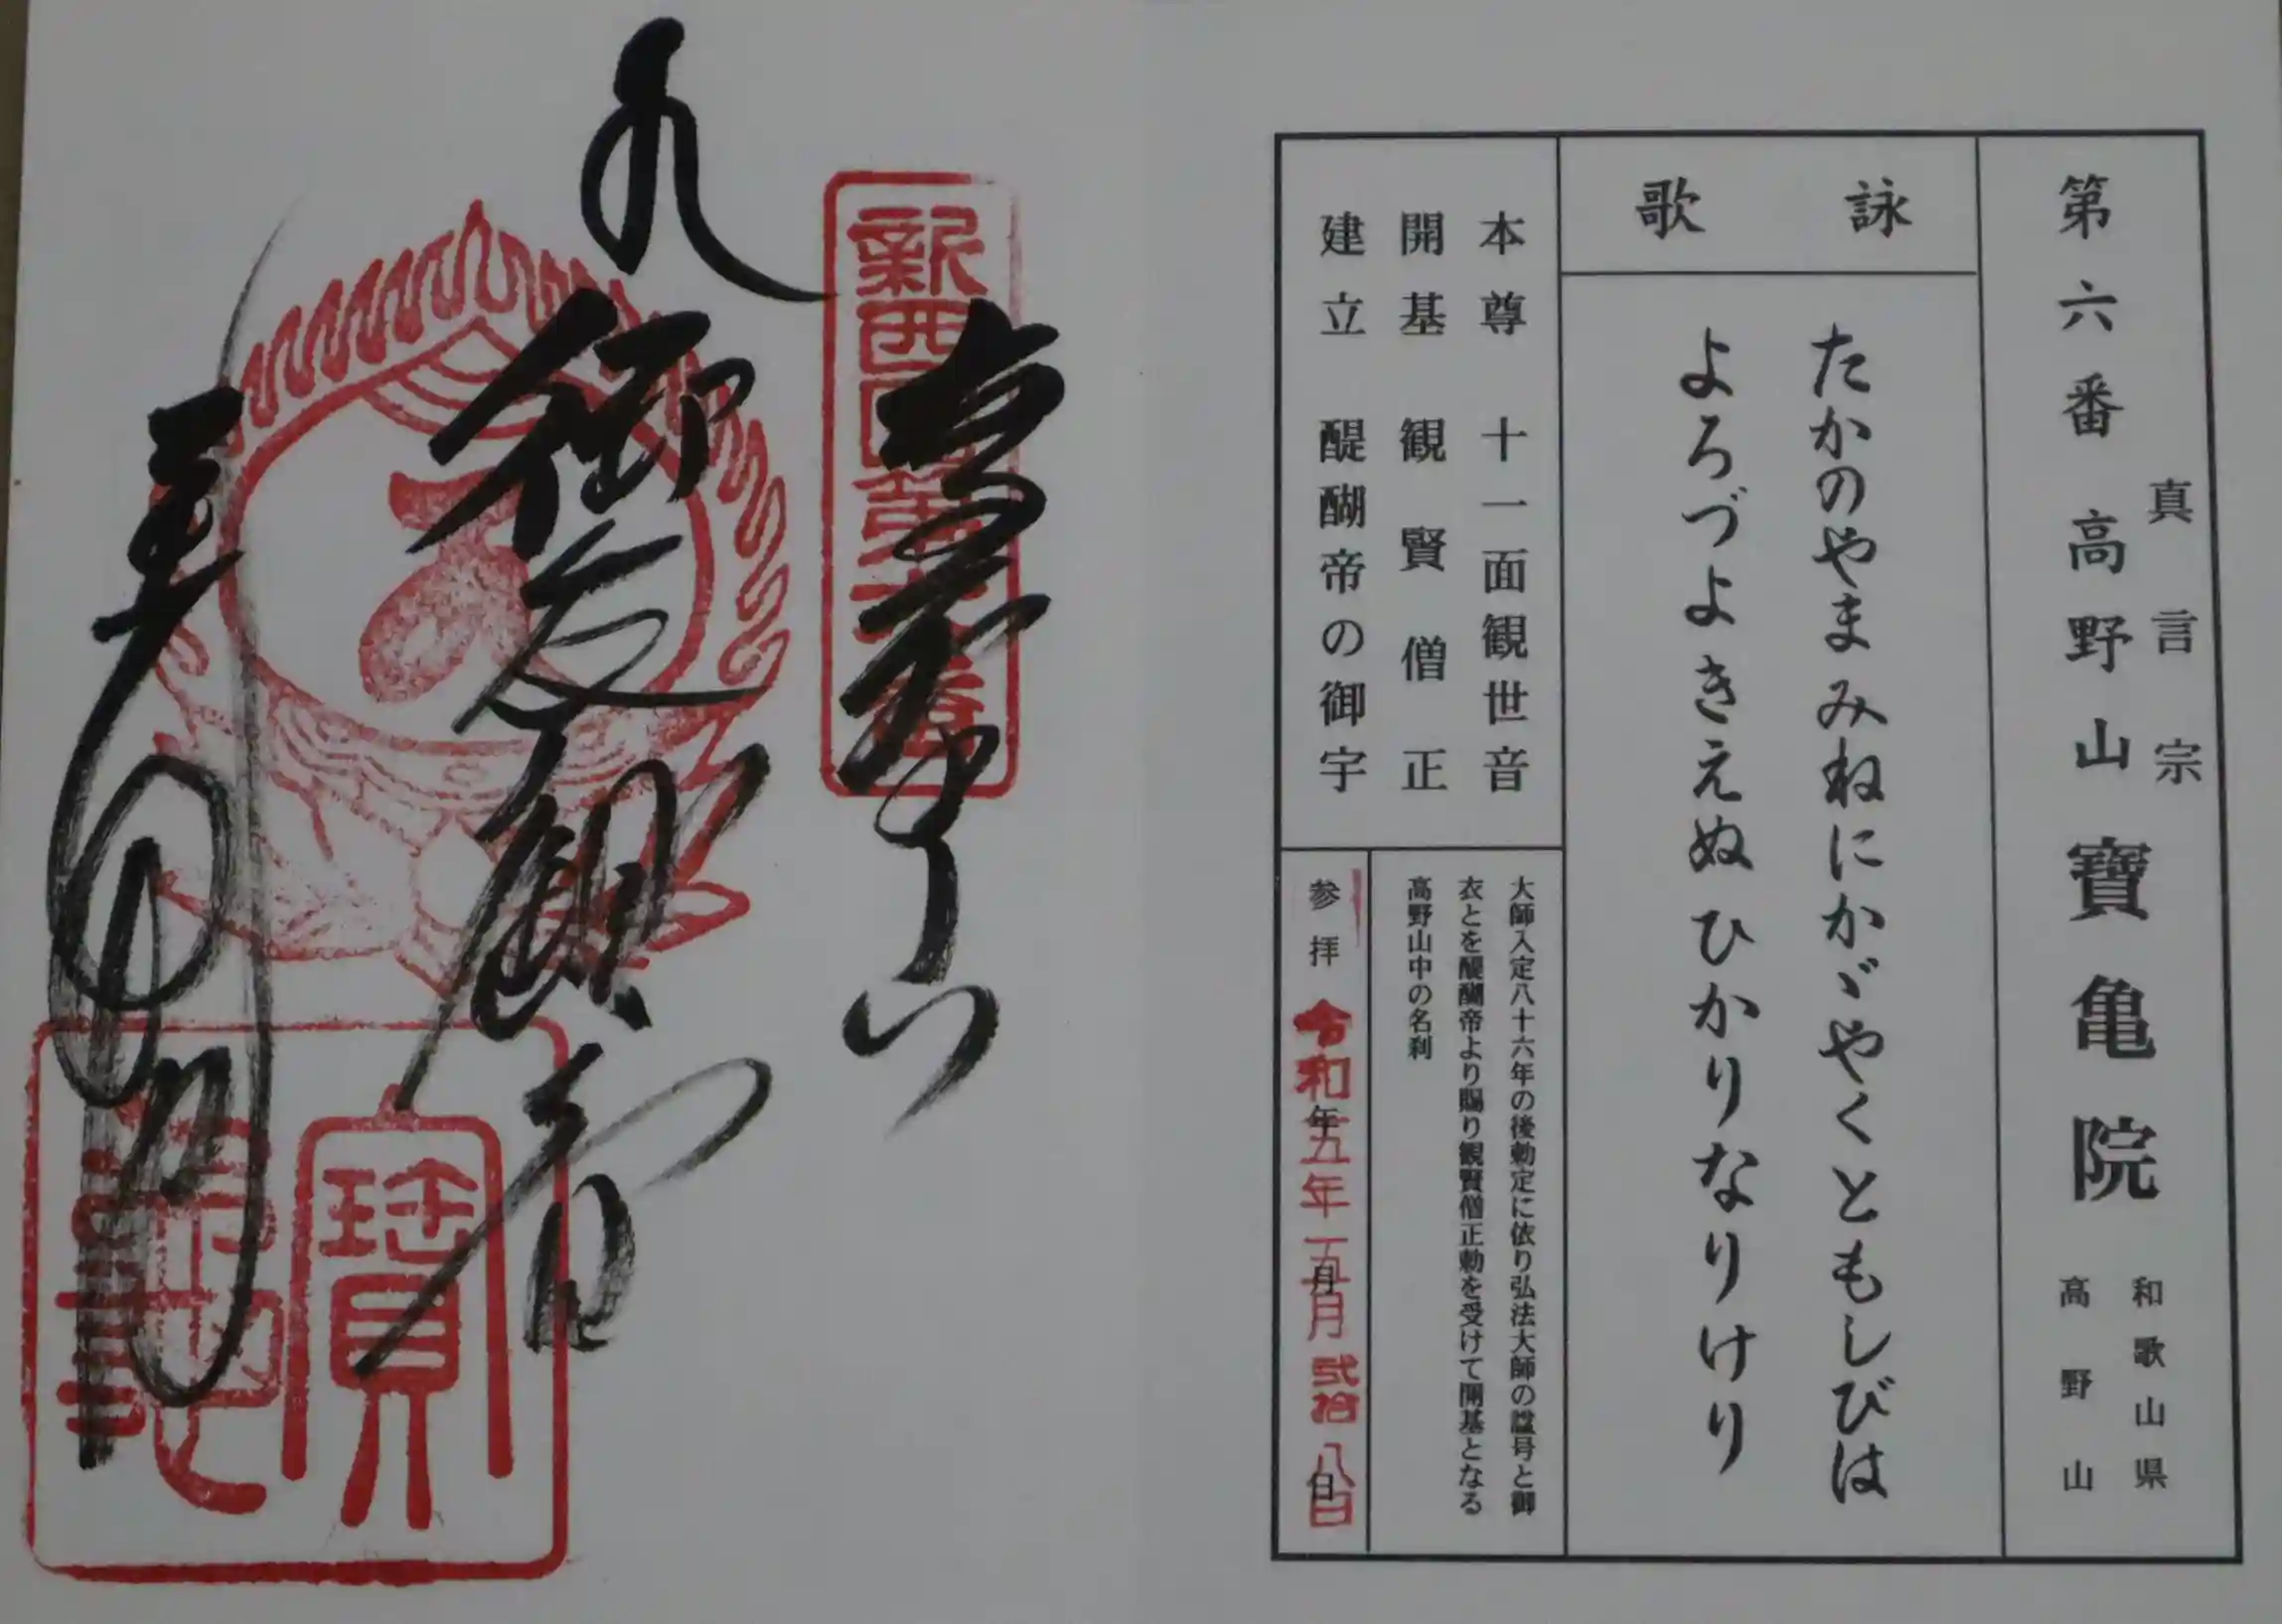 真言宗
第六番 高野山 寶亀院
和歌山県
高野山
詠歌
たかのやまみねにかゞやくともしびは
よろづよきえぬひかりなりけり
本尊 十一面観世音
開基 観賢僧正
建立 醍醐帝の御宇
大師入定八十六年の後勅定に依り弘法大師の諡号と御
衣とを醍醐帝より賜り観賢僧正勅を受けて開基となる
高野山中の名刹
参拝 年 月 日
令和五年五月弐拾八日
新西国第六番
高野山
御衣観音
寶亀